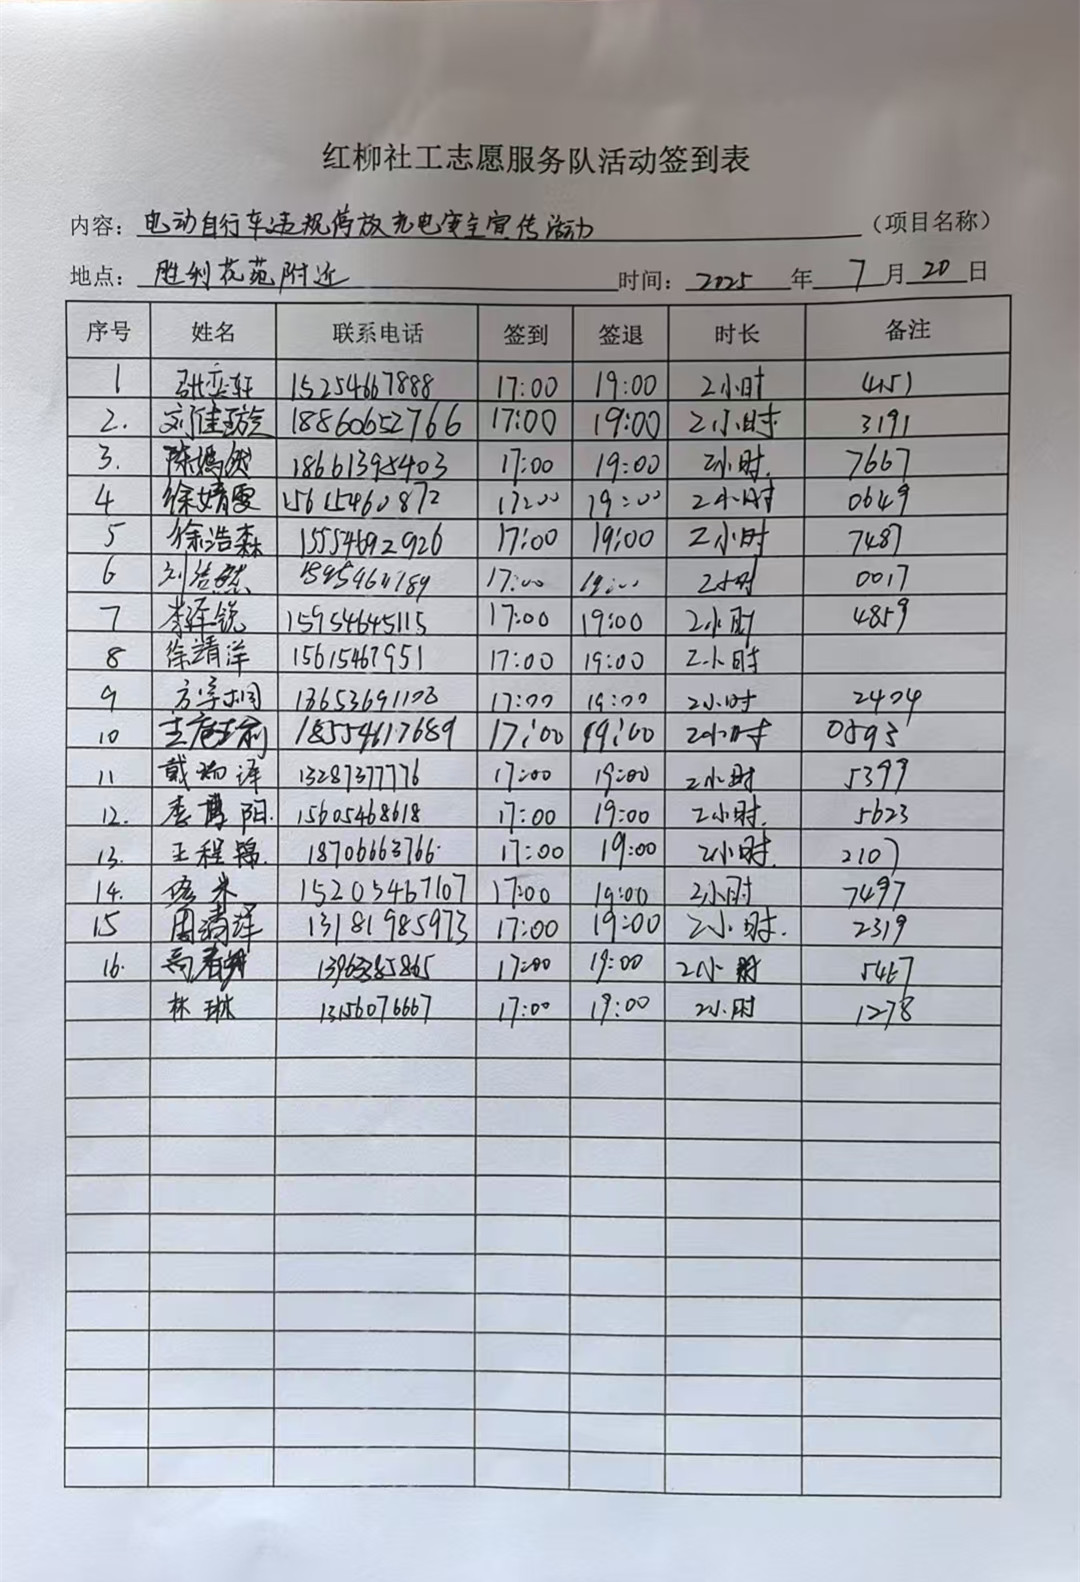 红柳社工志愿服务队活动签到表
内容: 电动自行车违规停放充电安全宣传活动 (项目名称)
地点: 胜利花苑附近 时间: 2025 年 7 月 20 日
序号 姓名 联系电话 签到 签退 时长 备注
1 轩 15254667888 17:00 19:00 2小时 4151
2. 刘佳璇 18860652766 17:00 19:00 2小时 3191
3. 陈嫣然 18661395403 17:00 19:00 2小时. 7667
4 徐婧雯 15615460872 17:00 19:00 2小时 0649
5 徐浩森 15554692926 17:00 19:00 2小时 7487
6 刘浩然 17:00 19:00 2小时 0017
7 李泽锐 15954645115 17:00 19:00 2小时 4859
8 徐靖洋 15615467951 17:00 19:00 2小时
9 方宇桐 13653691103 17:00 19:00 2小时 2404
10 18554617689 17:00 19:00 2小时 0593
11 戴瑞泽 13287377776 17:00 19:00 2小时 5399
12. 李博阳. 15605468618 17:00 19:00 2小时. 5623
13. 王程锦. 18706663766. 17:00 19:00 2小时. 2107
14. 米 15205467107 17:00 19:00 2小时 7497
15 周清泽 13181985973 17:00 19:00 2小时. 2319
16. 17:00 19:00 2小时 5467
林琳 13156076667 17:00 19:00 2小时 1278